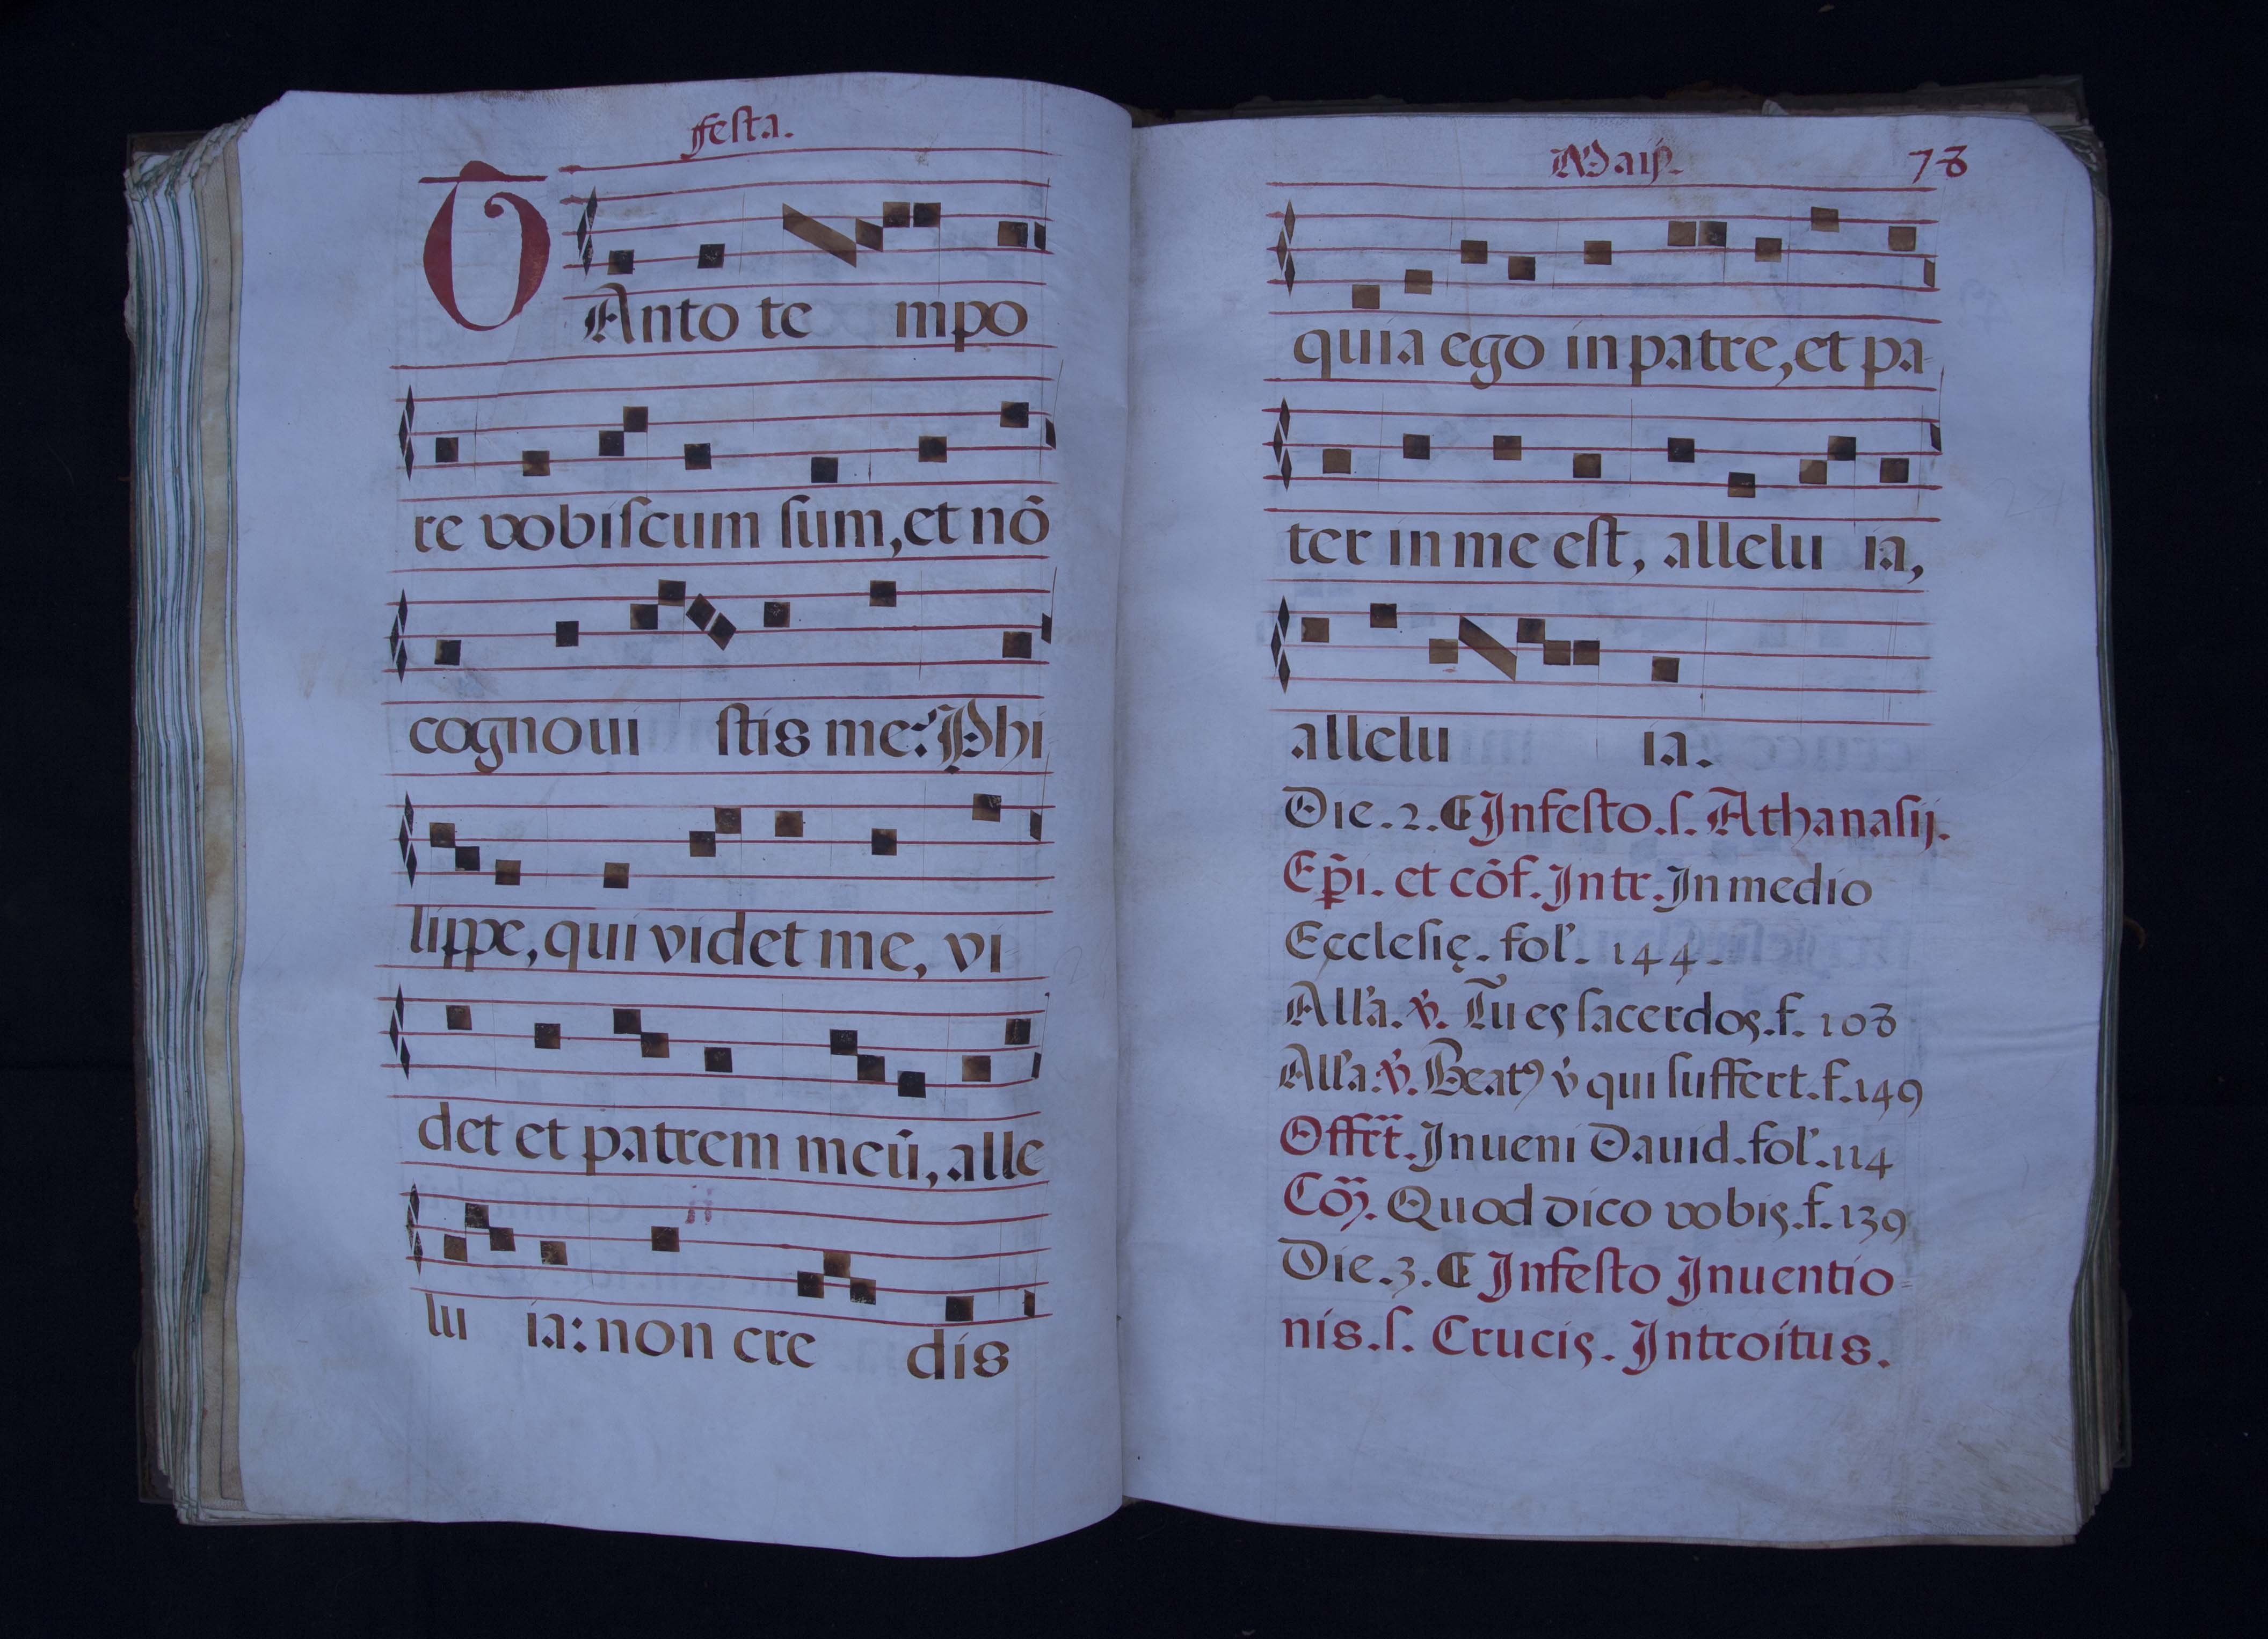 festa.
TAnto te mpo
re vobiſcum ſum, et nō
cognoui ſtis me? Phi
lippe, qui videt me, vi
det et patrem meū, alle
lu ia: non cre dis
Maij. 78
quia ego in patre, et pa
ter in me eſt, allelu ia,
allelu ia.
Die. 2. ¶ In feſto. ſ. Athanaſij.
Ep̃i. et cōf. Intr. In medio
Eccleſię. fol'. 144.
All'a. v̓. Tu es ſacerdos. f. 108
All'a. v̓. Beatꝰ v̓ qui ſuffert. f. 149
Offr̃t. Inueni Dauid. fol'. 114
Cōꝫ. Quod dico vobis. f. 139
Die. 3. ¶ In feſto Inuentio-
nis. ſ. Crucis. Introitus.